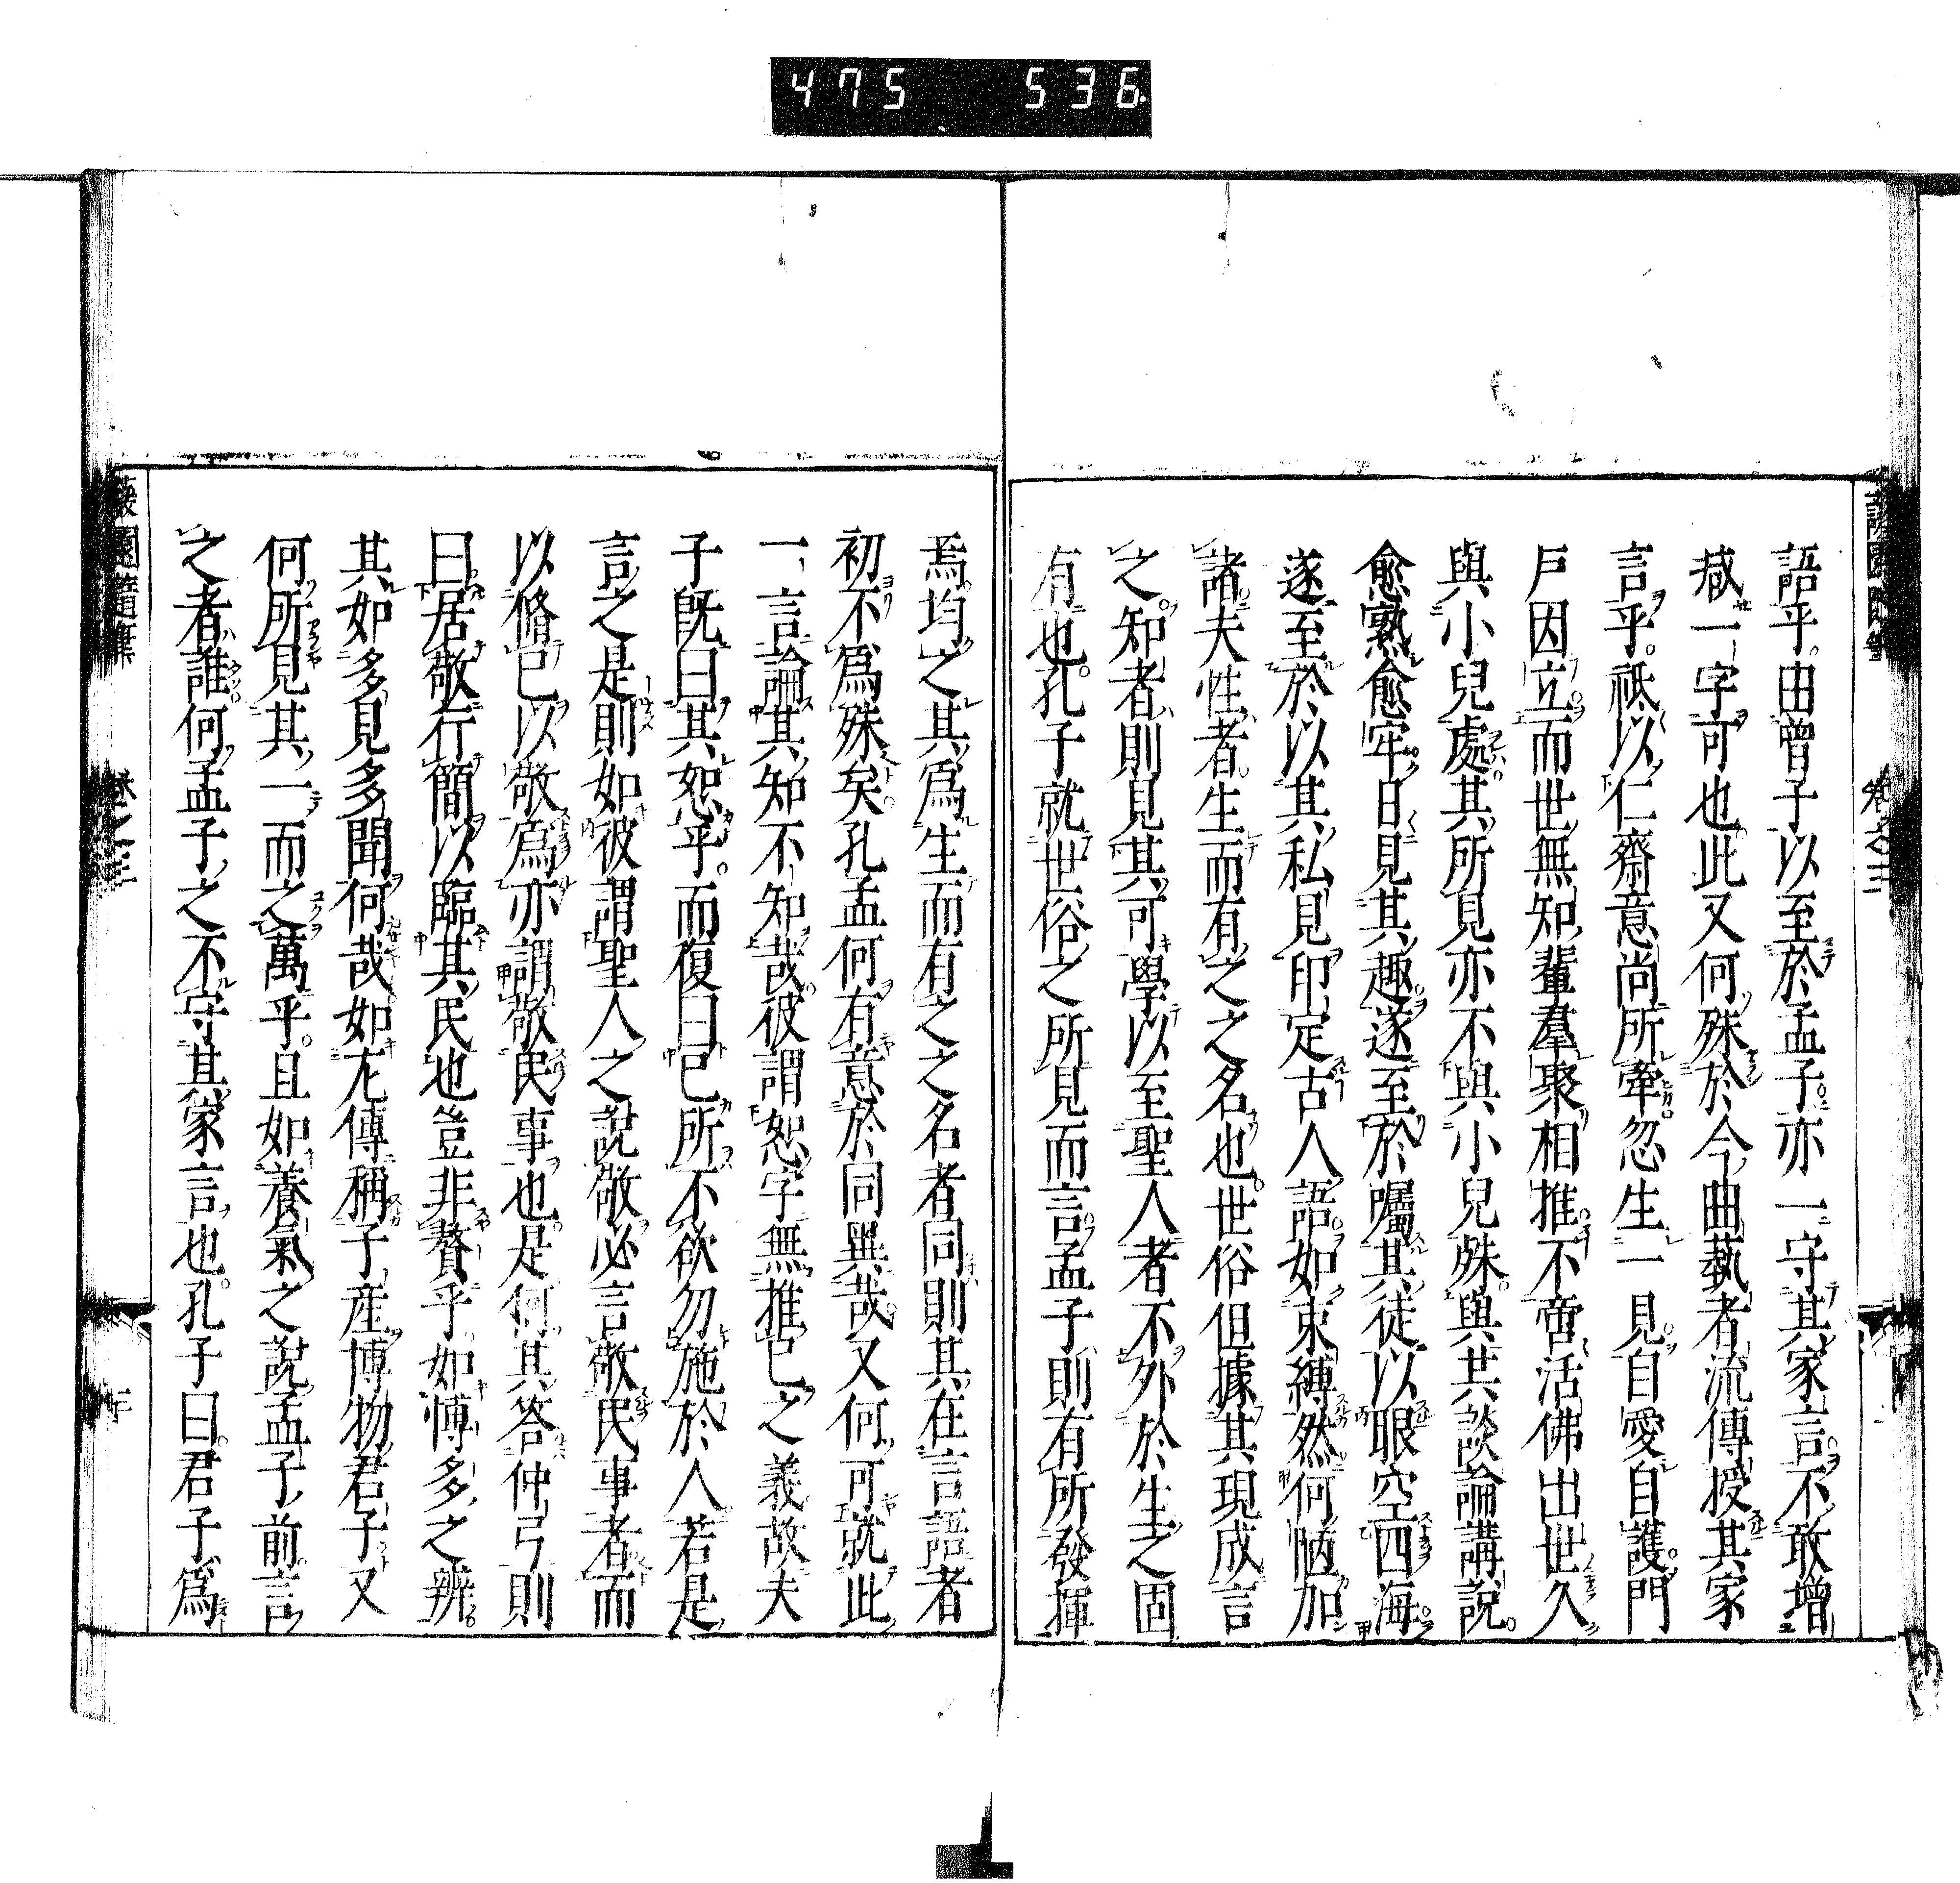 475 536
語乎由曾子以至於孟子亦一守其家言不敢增
減一字可也此又何殊於今曲藝者流傳授其家
言乎祗以仁齋意尚所牽忽生一見自愛自護門
戶因立而世無知輩羣聚相推不啻活佛出世久
與小兒處其所見亦不與小兒殊與共談論講說
愈熟愈牢日見其趣遂至於囑其徒以眼空四海
遂至於以其私見印定古人語如束縛然何恠加
諸夫性者生而有之之名也世俗但據其現成言
之知者則見其可學以至聖人者不外於生之固
有也孔子就世俗之所見而言孟子則有所發揮
焉均之其爲生而有之之名者同則其在言語者
初不爲殊矣孔孟何有意於同異哉又何可就此
一言論其知不知哉彼謂恕字無推己之義故夫
子旣曰其恕乎而復曰己所不欲勿施於人若是
言之是則如彼謂聖人之說敬必言敬民事者而
以脩己以敬爲亦謂敬民事也是何其答仲弓則
曰居敬行簡以臨其民也豈非贅乎如博多之辨
其如多見多聞何哉如左傳稱子產博物君子又
何所見其一而之萬乎且如養氣之說孟子前言
之者誰何孟子之不守其家言也孔子曰君子爲
蘐園隨筆 卷之三